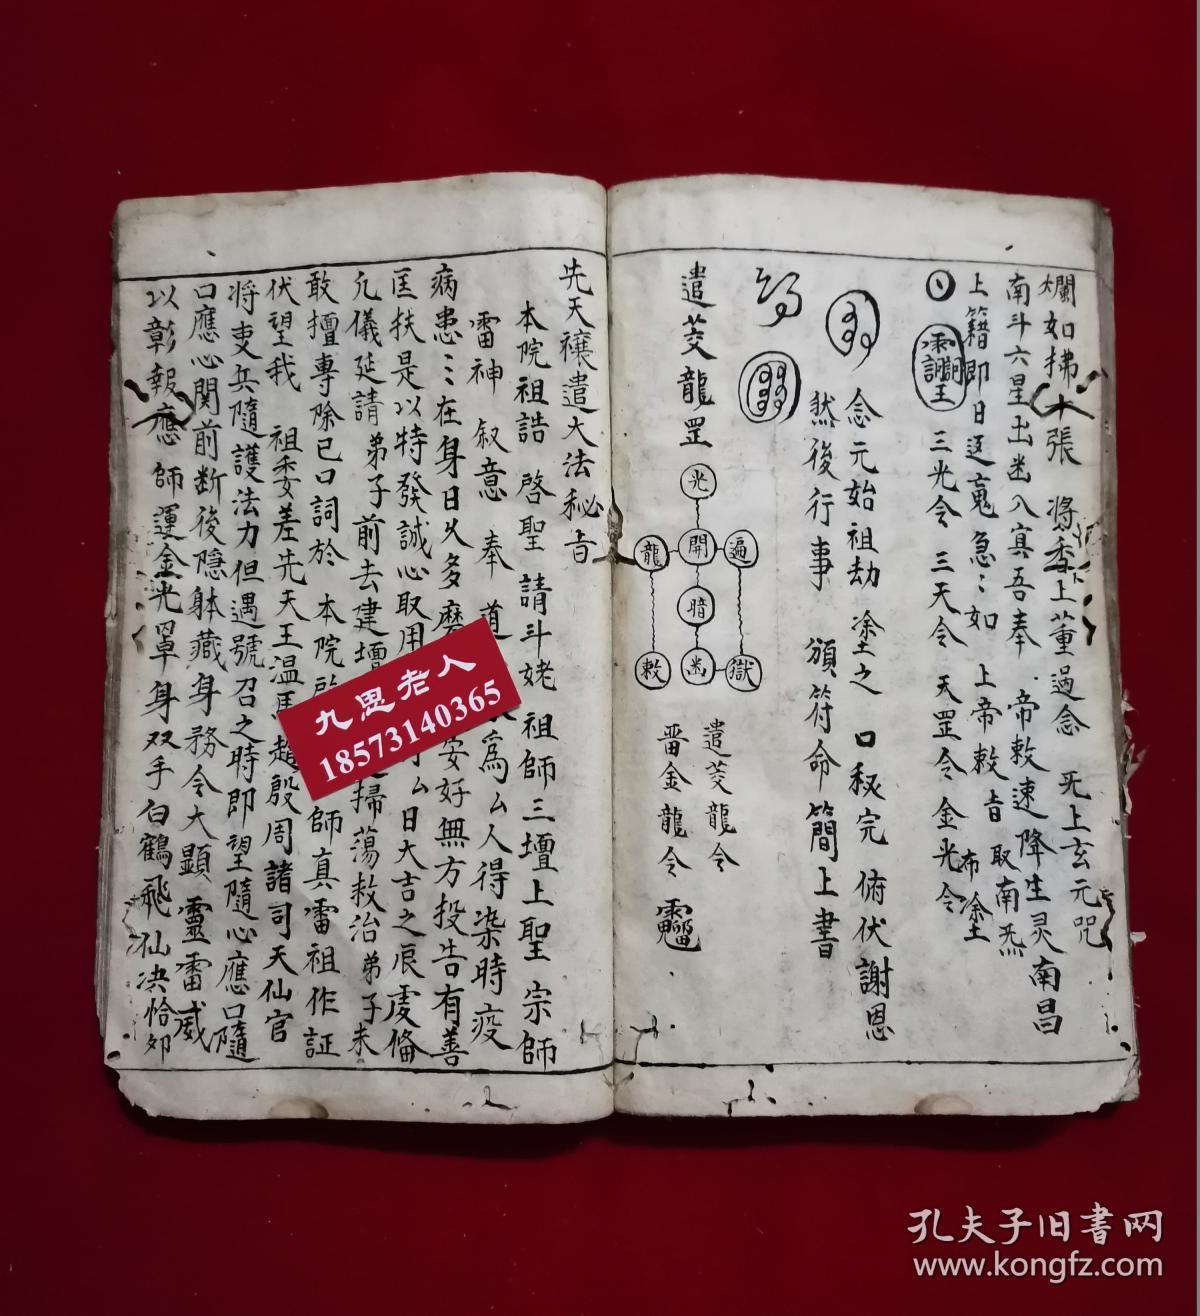 爛如拂十張 將香上薰過念 旡上玄元咒
南斗六星出幽入冥吾奉 帝敕速降生灵南昌
上籍即日逐嵬急〻如 上帝敕旨取南炁
三光令 三天令 天罡令 金光令 布凃
念元始祖劫凃之 口秘完 俯伏謝恩
然後行事 頒符命簡上書
遣茭龍罡
光
龍 開 遍
暗
敕 幽 獄
遣茭龍令
雷金龍令
先天禳遣大法秘旨
本院祖誥 啓聖 請斗姥祖師三壇上聖宗師
雷神 叙意 奉 道 為厶人得染時疫
病患〻在身日久多 安好無方投告有善
匡扶是以特發誠心取用 厶日大吉之辰虔俻
凢儀延請弟子前去建壇 掃蕩救治弟子未
敢擅專除已口詞於 本院 師真雷祖作証
伏望我 祖委差先天王温馬趙殷周諸司天仙官
將吏兵隨護法力但遇號召之時即望隨心應口隨
口應心関前断後隱躰藏身務令大顯靈雷威
以彰報應 師運金光罩身双手白鶴飛仙决恰卯
九思老人
18573140365
孔夫子旧书网
www.kongfz.com